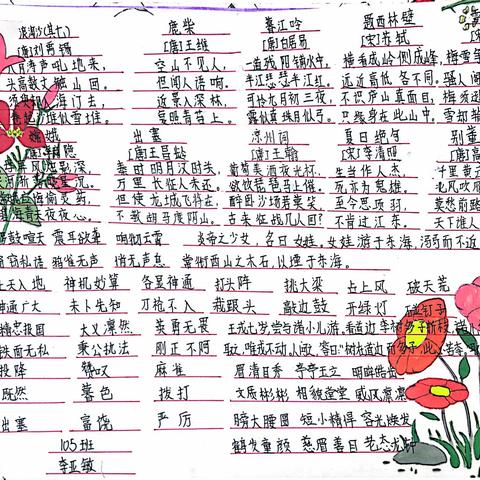 浪淘沙(其七) 鹿柴 暮江吟 题西林壁
[唐]刘禹锡 [唐]王维 [唐]白居易 [宋]苏轼
八月涛声吼地来, 空山不见人, 一道残阳铺水中, 横看成岭侧成峰, 梅雪争
头高数丈触山回。 但闻人语响。 半江瑟瑟半江红。 远近高低各不同。 骚人阁
须臾却入海门去, 返景入深林, 可怜九月初三夜, 不识庐山真面目, 梅须逊
卷起沙堆似雪堆。 复照青苔上。 露似真珠月似弓。 只缘身在此山中。 雪却输
嫦娥 出塞 凉州词 夏日绝句 别董
[唐]王昌龄 [唐]王翰 [宋]李清照 [唐]高
屏风烛影深, 秦时明月汉时关, 葡萄美酒夜光杯, 生当作人杰, 千里黄云
万里长征人未还。 欲饮琵琶马上催。 死亦为鬼雄。 北风吹雁
但使龙城飞将在, 醉卧沙场君莫笑, 至今思项羽, 莫愁前路
夜夜心。 不教胡马度阴山。 古来征战几人回? 不肯过江东。 天下谁人
鼓喧天 震耳欲聋 响彻云霄 炎帝之少女,名曰女娃。女娃游于东海,溺而不返
窃窃私语 鸦雀无声 悄无声息 常衔西山之木石,以堙于东海。
上天入地 神机妙算 各显神通 打头阵 挑大梁 占上风 破天荒
神通广大 未卜先知 刀枪不入 栽跟头 敲边鼓 开绿灯 碰钉子
精忠报国 大义凛然 英勇无畏 王戎七岁,尝与诸小儿游,看道边李树多子折枝,诸小
铁面无私 秉公执法 刚正不阿 取之,唯戎不动,人问之,答曰:"树在道边而多子,此必苦李,取
投降 麻雀 眉清目秀 亭亭玉立 明眸皓齿
既然 暮色 拨打 文质彬彬 相貌堂堂 威风凛凛
出塞 富饶 严厉 膀大腰圆 短小精悍 容光焕发
105班 鹤发童颜 慈眉善目 老态龙钟
李亚敏